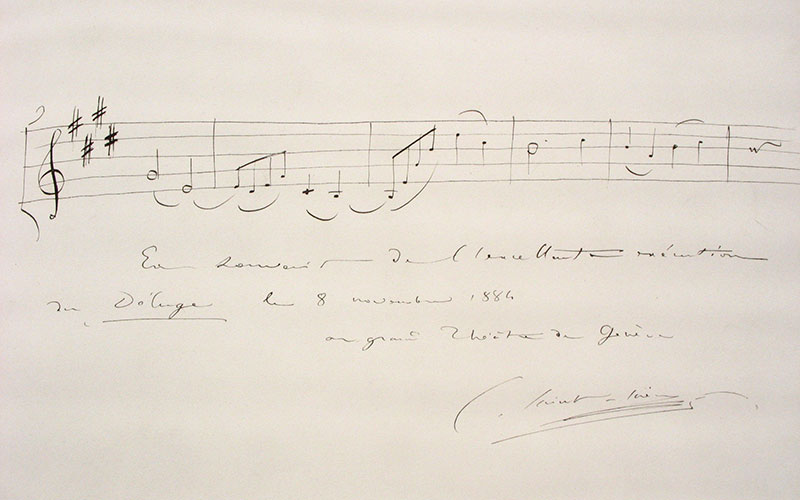 En souvenir de l'excellente exécution
du Déluge le 8 novembre 1884
au grand Théâtre de Genève
C. Saint-Saëns